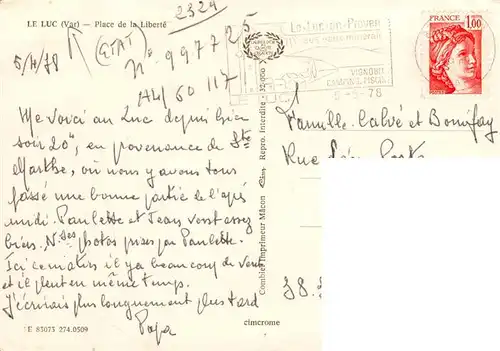 LE LUC (Var) — Place de la Liberté
2324
(ETAT)
5/4/78
N° 997725
A4/60 117
Me voici au Luc depuis hier
soir 20h, en provenance de Ste
Marthe, où nous y avons tous
passé une bonne partie de l'après
midi. Paulette et Jean vont assez
bien. Nses photos prises par Paulette.
Ici ce matin il y a beaucoup de vent
et il pleut en même temps.
J'écrirais plus longuement plus tard
Papa
E 83073 274.0509
cimcrome
Combier Imprimeur Mâcon
Repro. Interdite
Le Luc-en-Provence
VIGNOBLE
-5-78
FRANCE
1,00
POSTES
Famille Calvé et
Rue
38